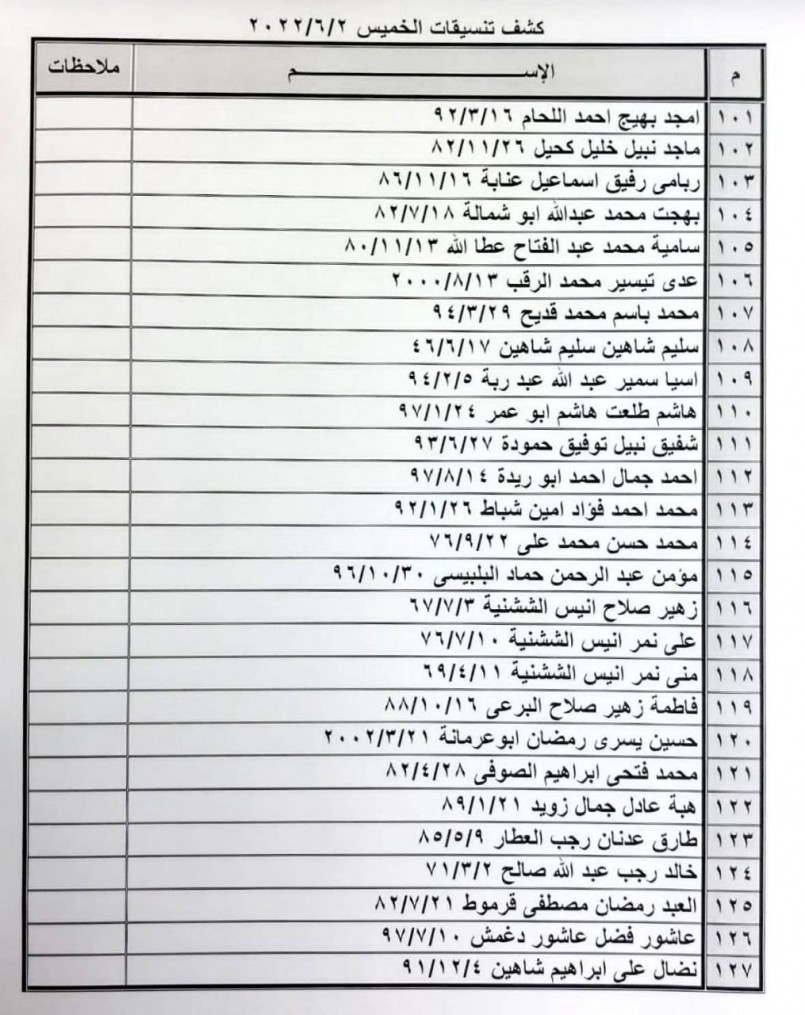 كشف تنسيقات الخميس ٢٠٢٢/٦/٢
م الإســـم ملاحظات
١٠١ امجد بهيج احمد اللحام ٩٢/٣/١٦
١٠٢ ماجد نبيل خليل كحيل ٨٢/١١/٢٦
١٠٣ ربامى رفيق اسماعيل عنابة ٨٦/١١/١٦
١٠٤ بهجت محمد عبدالله ابو شمالة ٨٢/٧/١٨
١٠٥ سامية محمد عبد الفتاح عطا الله ٨٠/١١/١٣
١٠٦ عدى تيسير محمد الرقب ٢٠٠٠/٨/١٣
١٠٧ محمد باسم محمد قديح ٩٤/٣/٢٩
١٠٨ سليم شاهين سليم شاهين ٤٦/٦/١٧
١٠٩ اسيا سمير عبد الله عبد ربة ٩٤/٢/٥
١١٠ هاشم طلعت هاشم ابو عمر ٩٧/١/٢٤
١١١ شفيق نبيل توفيق حمودة ٩٣/٦/٢٧
١١٢ احمد جمال احمد ابو ريدة ٩٧/٨/١٤
١١٣ محمد احمد فؤاد امين شباط ٩٢/١/٢٦
١١٤ محمد حسن محمد على ٧٦/٩/٢٢
١١٥ مؤمن عبد الرحمن حماد البلبيسى ٩٦/١٠/٣٠
١١٦ زهير صلاح انيس الششنية ٦٧/٧/٣
١١٧ على نمر انيس الششنية ٧٦/٧/١٠
١١٨ منى نمر انيس الششنية ٦٩/٤/١١
١١٩ فاطمة زهير صلاح البرعى ٨٨/١٠/١٦
١٢٠ حسين يسرى رمضان ابوعرمانة ٢٠٠٢/٣/٢١
١٢١ محمد فتحى ابراهيم الصوفى ٨٢/٤/٢٨
١٢٢ هبة عادل جمال زويد ٨٩/١/٢١
١٢٣ طارق عدنان رجب العطار ٨٥/٥/٩
١٢٤ خالد رجب عبد الله صالح ٧١/٣/٢
١٢٥ العبد رمضان مصطفى قرموط ٨٢/٧/٢١
١٢٦ عاشور فضل عاشور دغمش ٩٧/٧/١٠
١٢٧ نضال على ابراهيم شاهين ٩١/١٢/٤